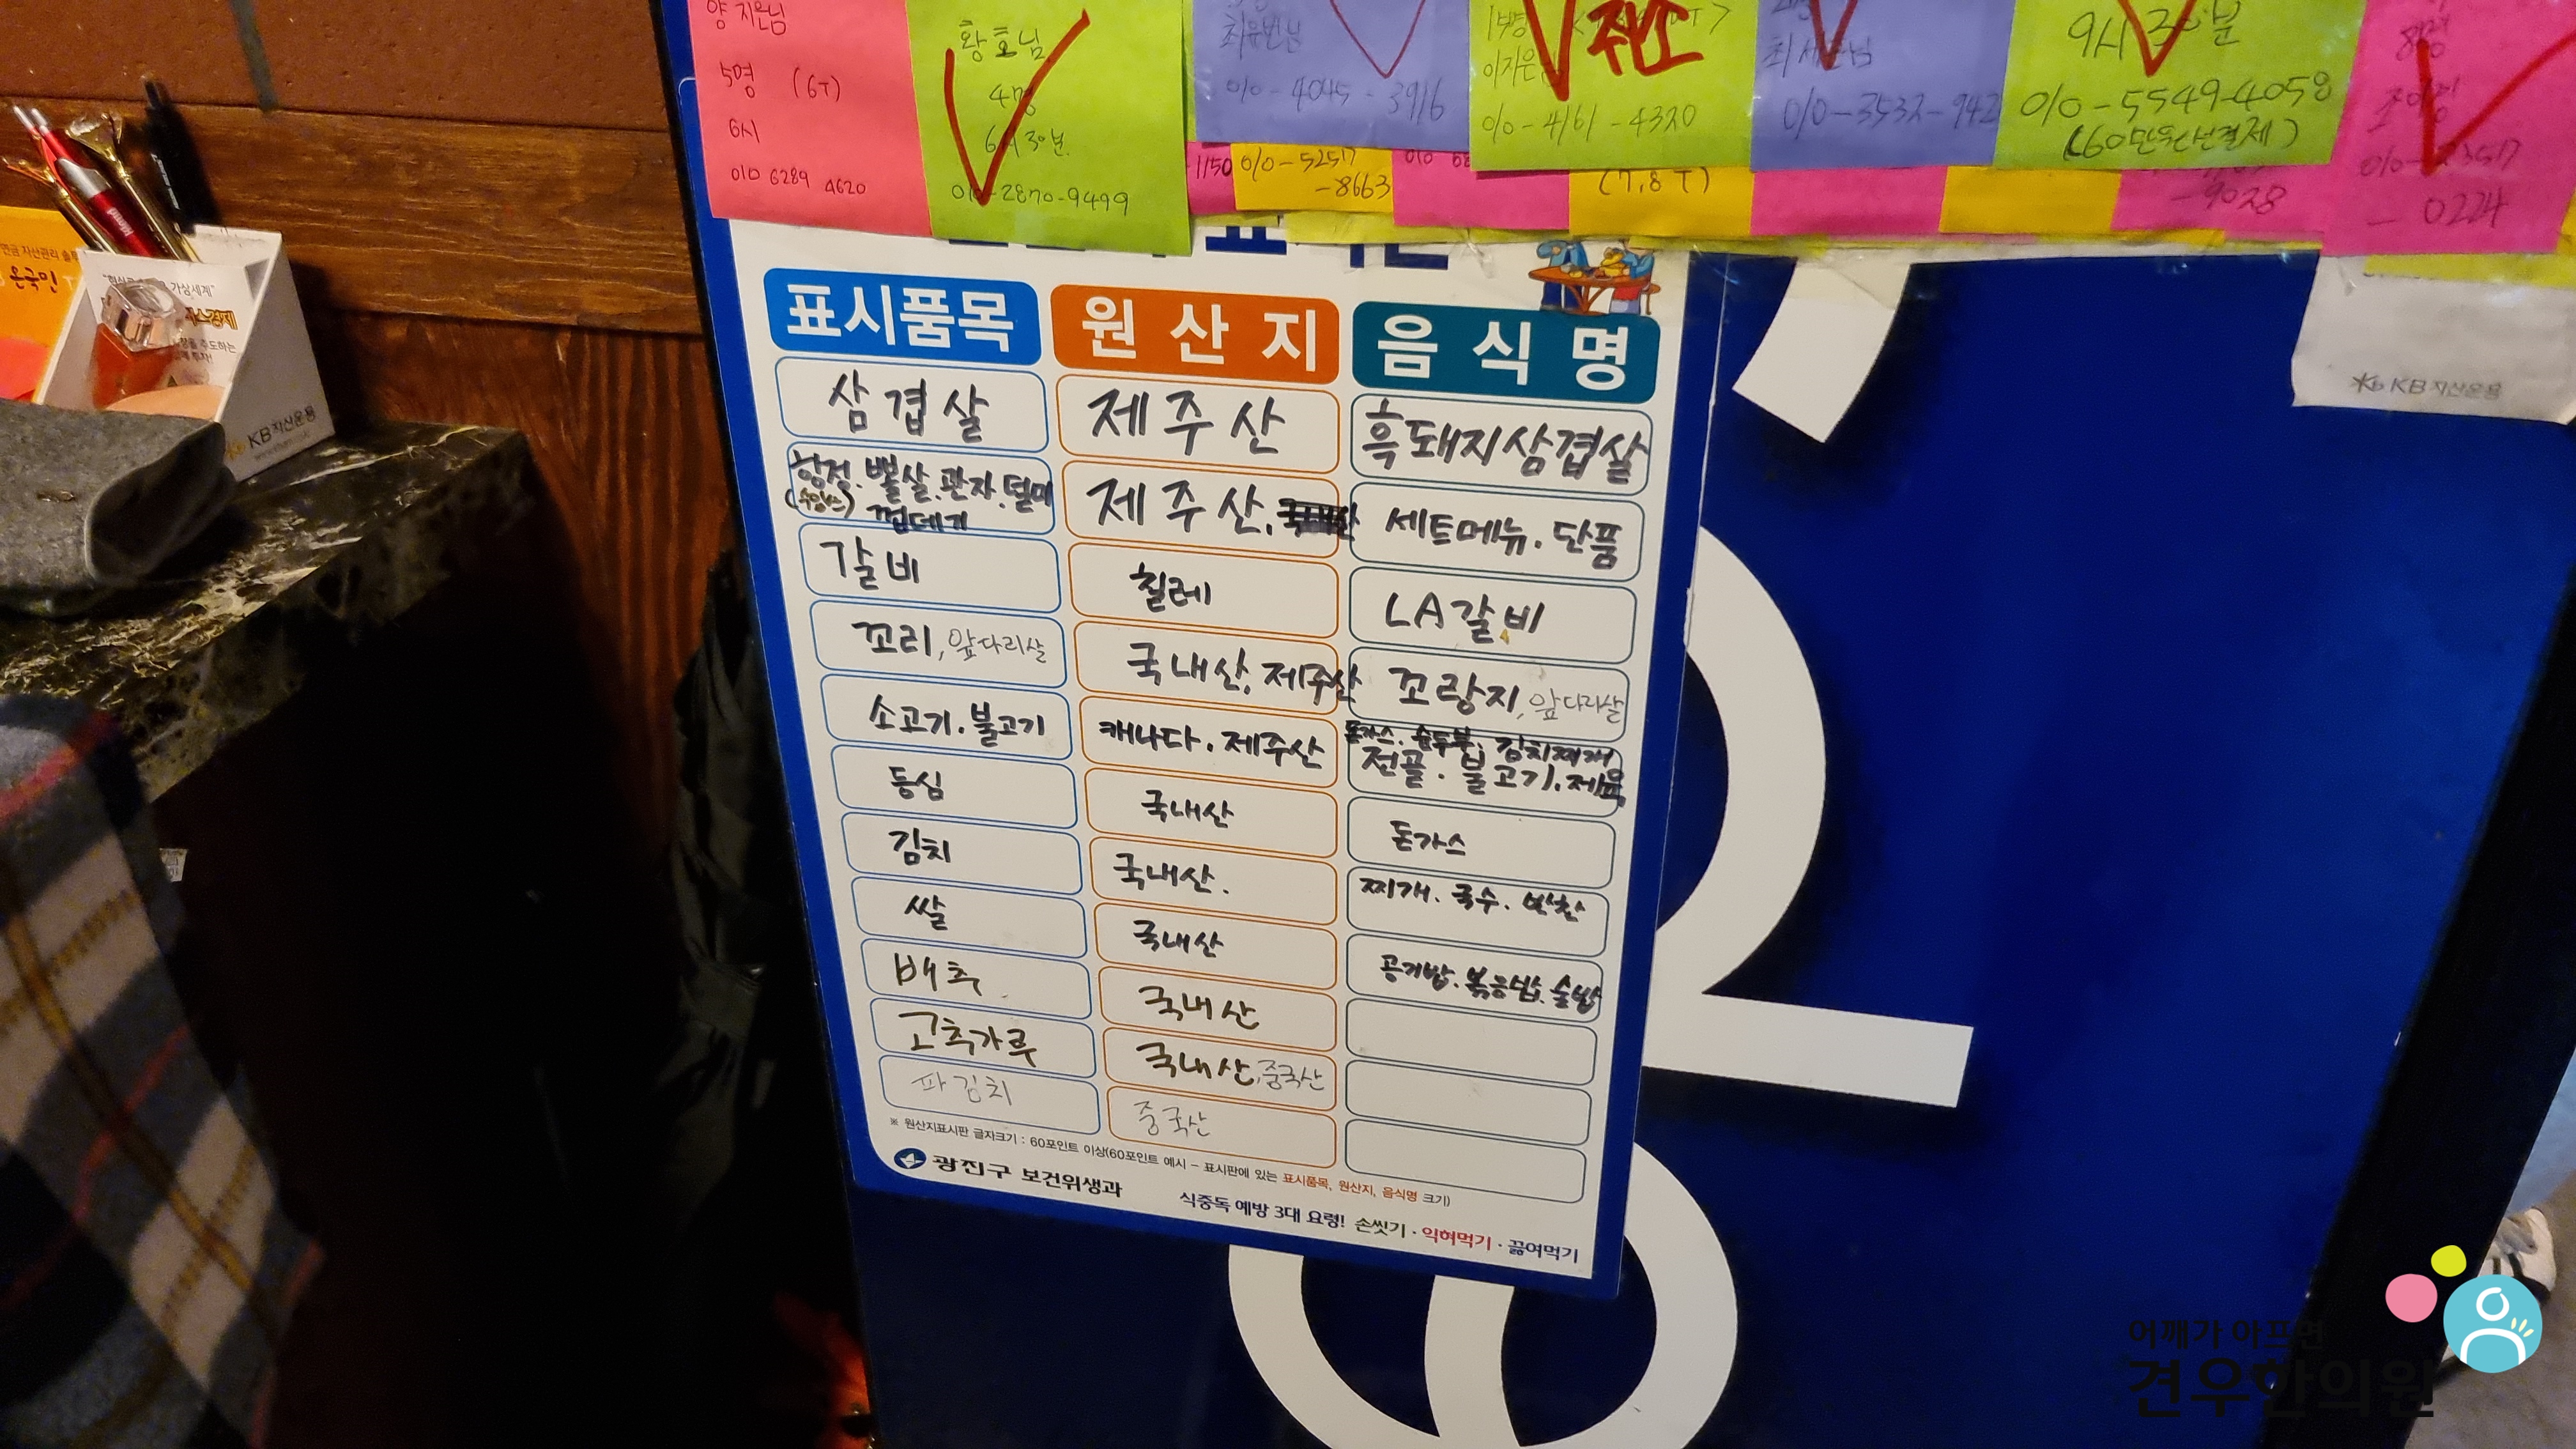 양지은님
5명 (6T)
6시
010 6289 4620
황호님
4명
6시 30분
010-2870-9499
010-4045-3916
취소
010-4161-4320
010-3532-942
9시 30분
010-5549-4058
(60만원선결제)
1150
010-5257
-8663
(7,8T)
-9028
-0224
표시품목 원산지 음식명
삼겹살 제주산 흑돼지삼겹살
항정.뽈살.관자.덜미 제주산. 세트메뉴.단품
껍데기
갈비 칠레 LA갈비
꼬리,앞다리살 국내산,제주산 꼬랑지,앞다리살
돈가스.순두부.김치찌개
소고기.불고기 캐나다.제주산 전골.불고기.제육
등심 국내산 돈가스
김치 국내산. 찌개.국수.반찬
쌀 국내산 공기밥.볶음밥.술밥
배추 국내산
고추가루 국내산,중국산
파김치 중국산
※ 원산지표시판 글자크기 : 60포인트 이상(60포인트 예시 - 표시판에 있는 표시품목, 원산지, 음식명 크기)
광진구 보건위생과
식중독 예방 3대 요령! 손씻기 · 익혀먹기 · 끓여먹기
연금 자산관리 솔루
온국민
가상세계"
KB자산운용
KB자산운용
어깨가 아프면
견우한의원